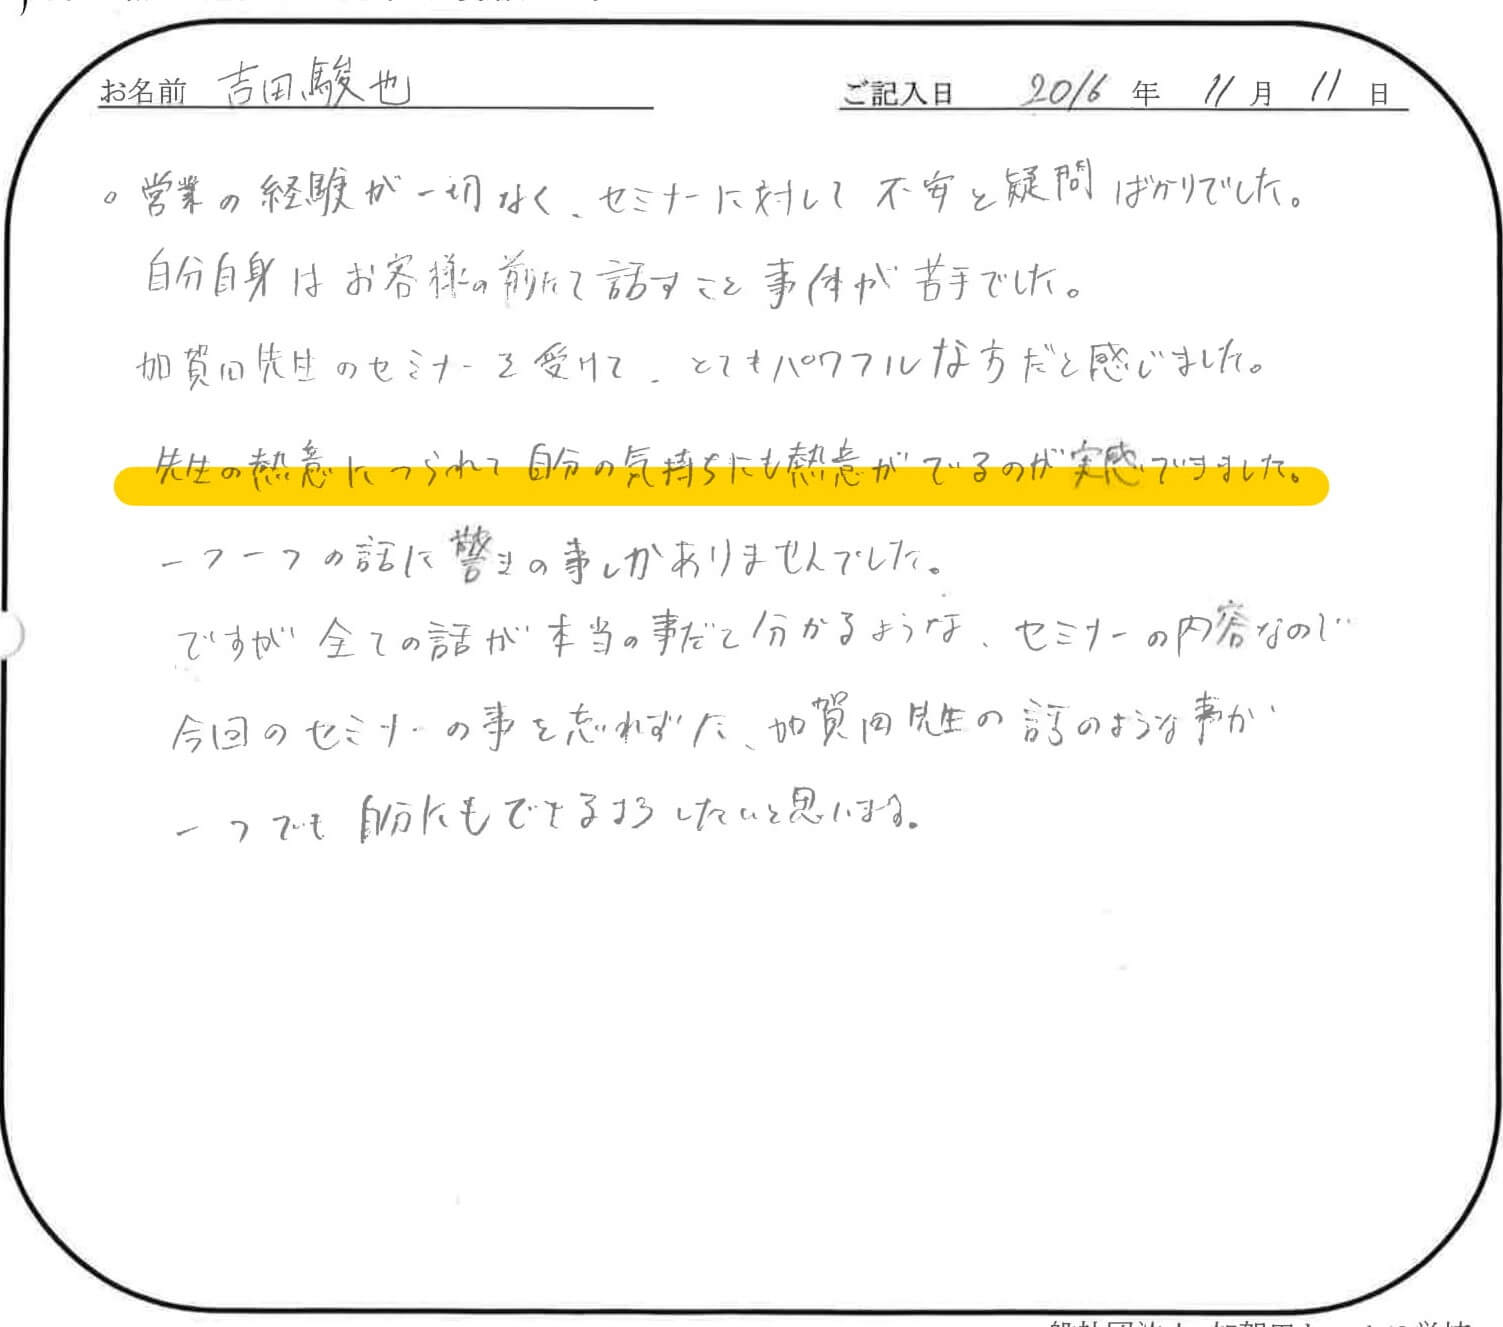 お名前 吉田駿也 ご記入日 2016 年 11 月 11 日
。営業の経験が一切なく、セミナーに対して不安と疑問ばかりでした。
自分自身はお客様の前にて話すこと事体が苦手でした。
加賀田先生のセミナーを受けて、とてもパワフルな方だと感じました。
先生の熱意につられて自分の気持ちにも熱意がでるのが実感できました。
一つ一つの話に驚きの事しかありませんでした。
ですが全ての話が本当の事だて分かるような、セミナーの内容なので
今回のセミナーの事を忘れずに、加賀田先生の話のような事が
一つでも自分にもできるようしたいと思います。